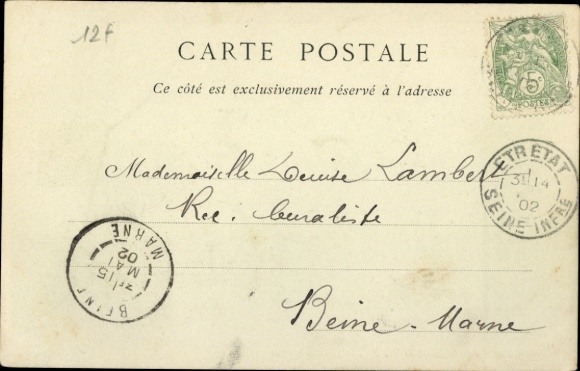 12F
CARTE POSTALE
Ce côté est exclusivement réservé à l'adresse
5c
ETRETAT
14
02
SEINE INFRE
Mademoiselle Louise Lambert
Rec. buraliste
Beine - Marne
BEINE
15
MAI
02
MARNE